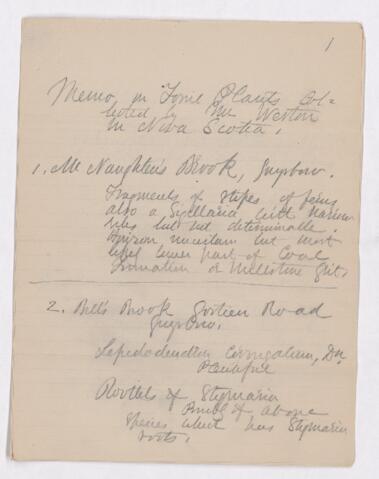 1
Memo on Fossil Plants Col=
lected by Mr Weston
in Nova Scotia.
1. McNaughten's Brook, Guysboro.
Fragments of stipes of ferns
also a Sigillaria with narrow
ribs but not determinable.
Horizon uncertain but most
likely lower part of Coal
Formation or Millstone Grit.
2. Bill's Brook Road
Guysboro.
Lepidodendron corrugatum, Dn
Plentiful
Rootlets of Stigmaria
Probly of above
Species which has Stigmaria
roots.